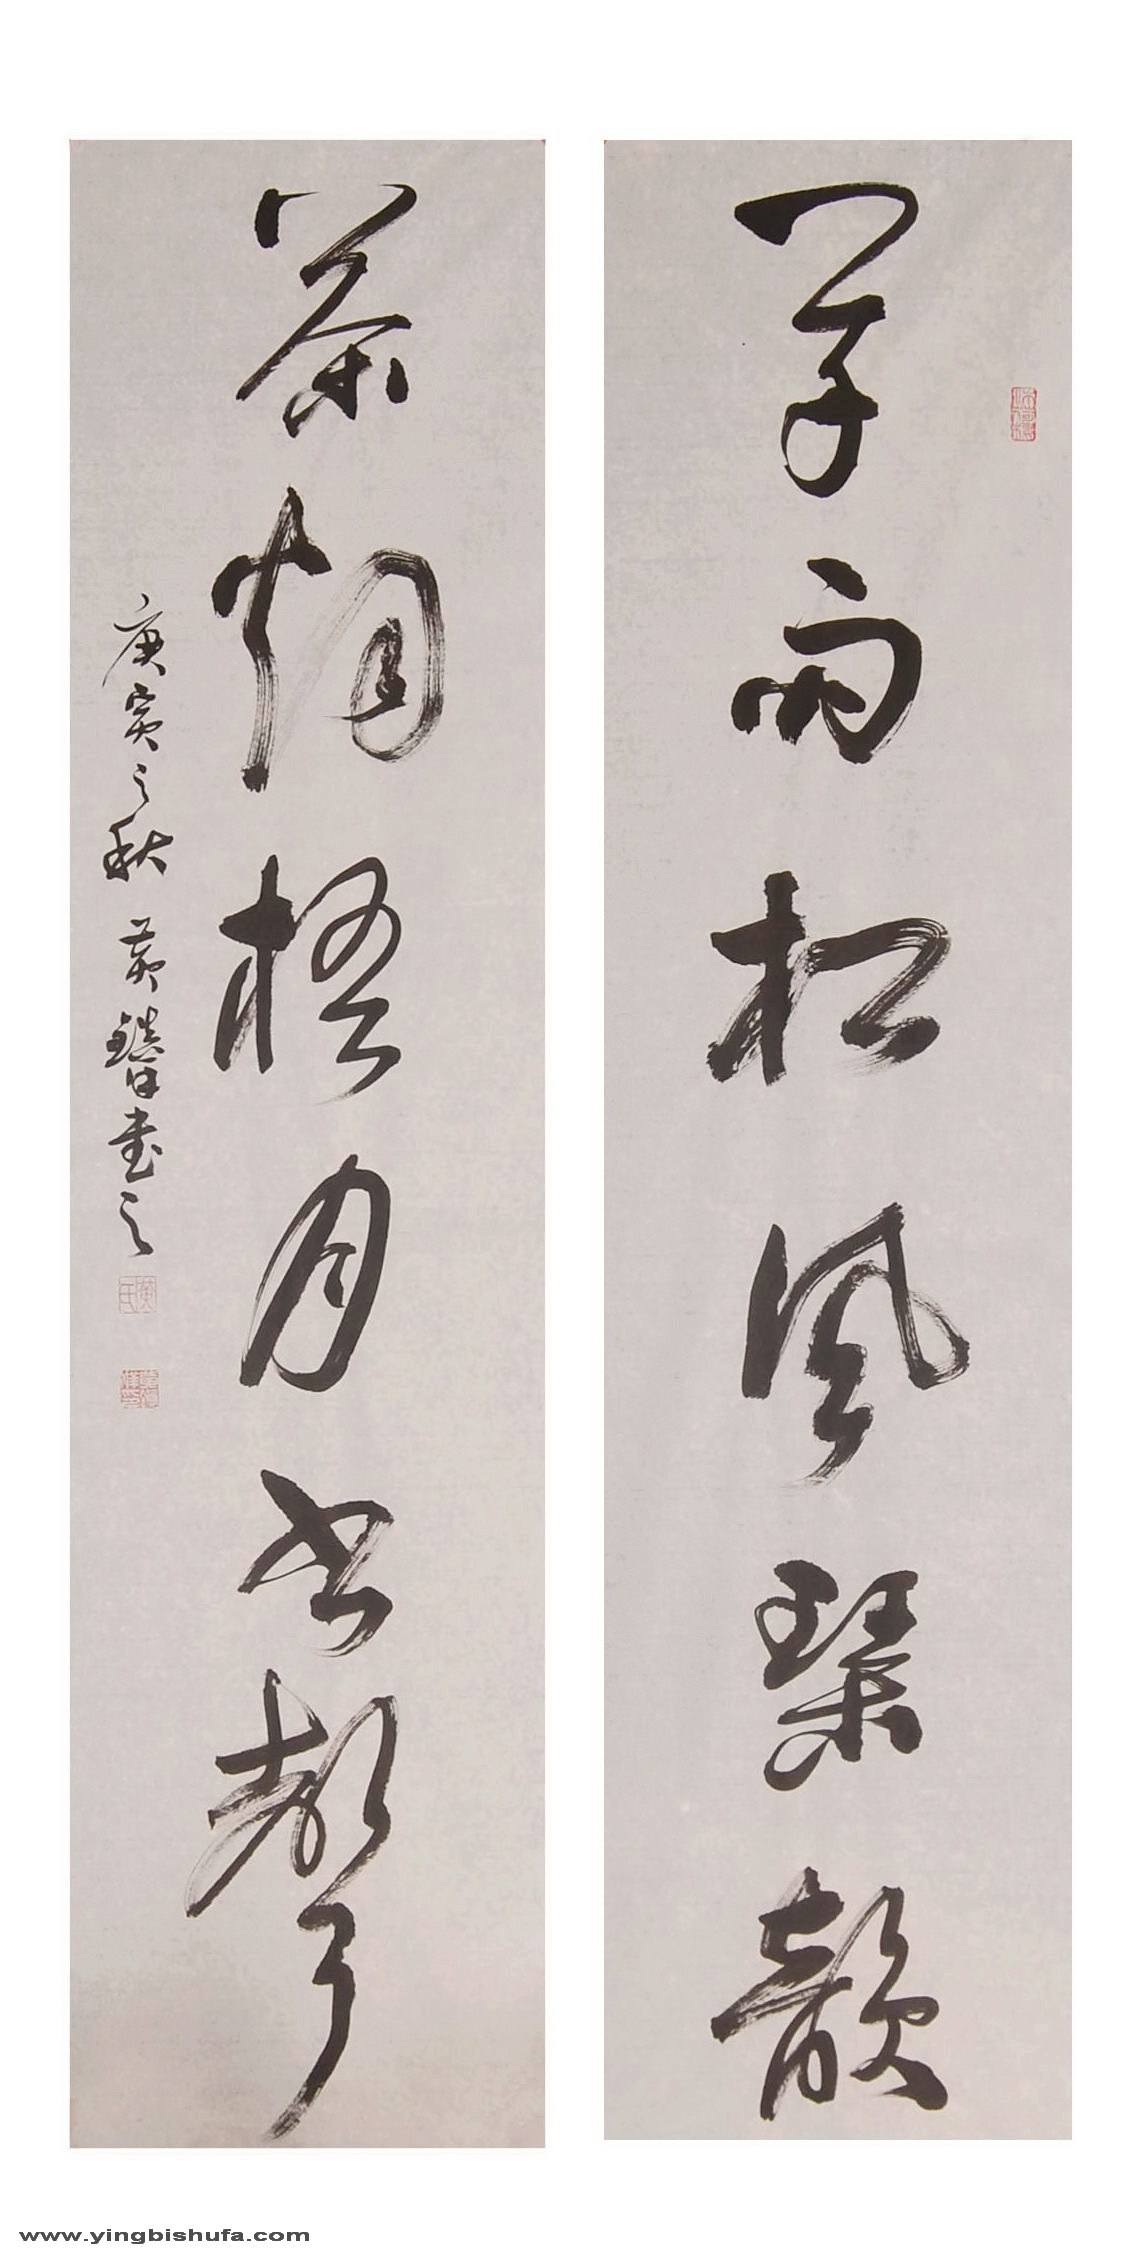 雨松風琴韻
茶烟梧月書聲
庚寅之秋 黄書之
www.yingbishufa.com